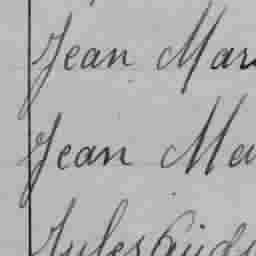 Jean Mar
Jean Ma
Jules